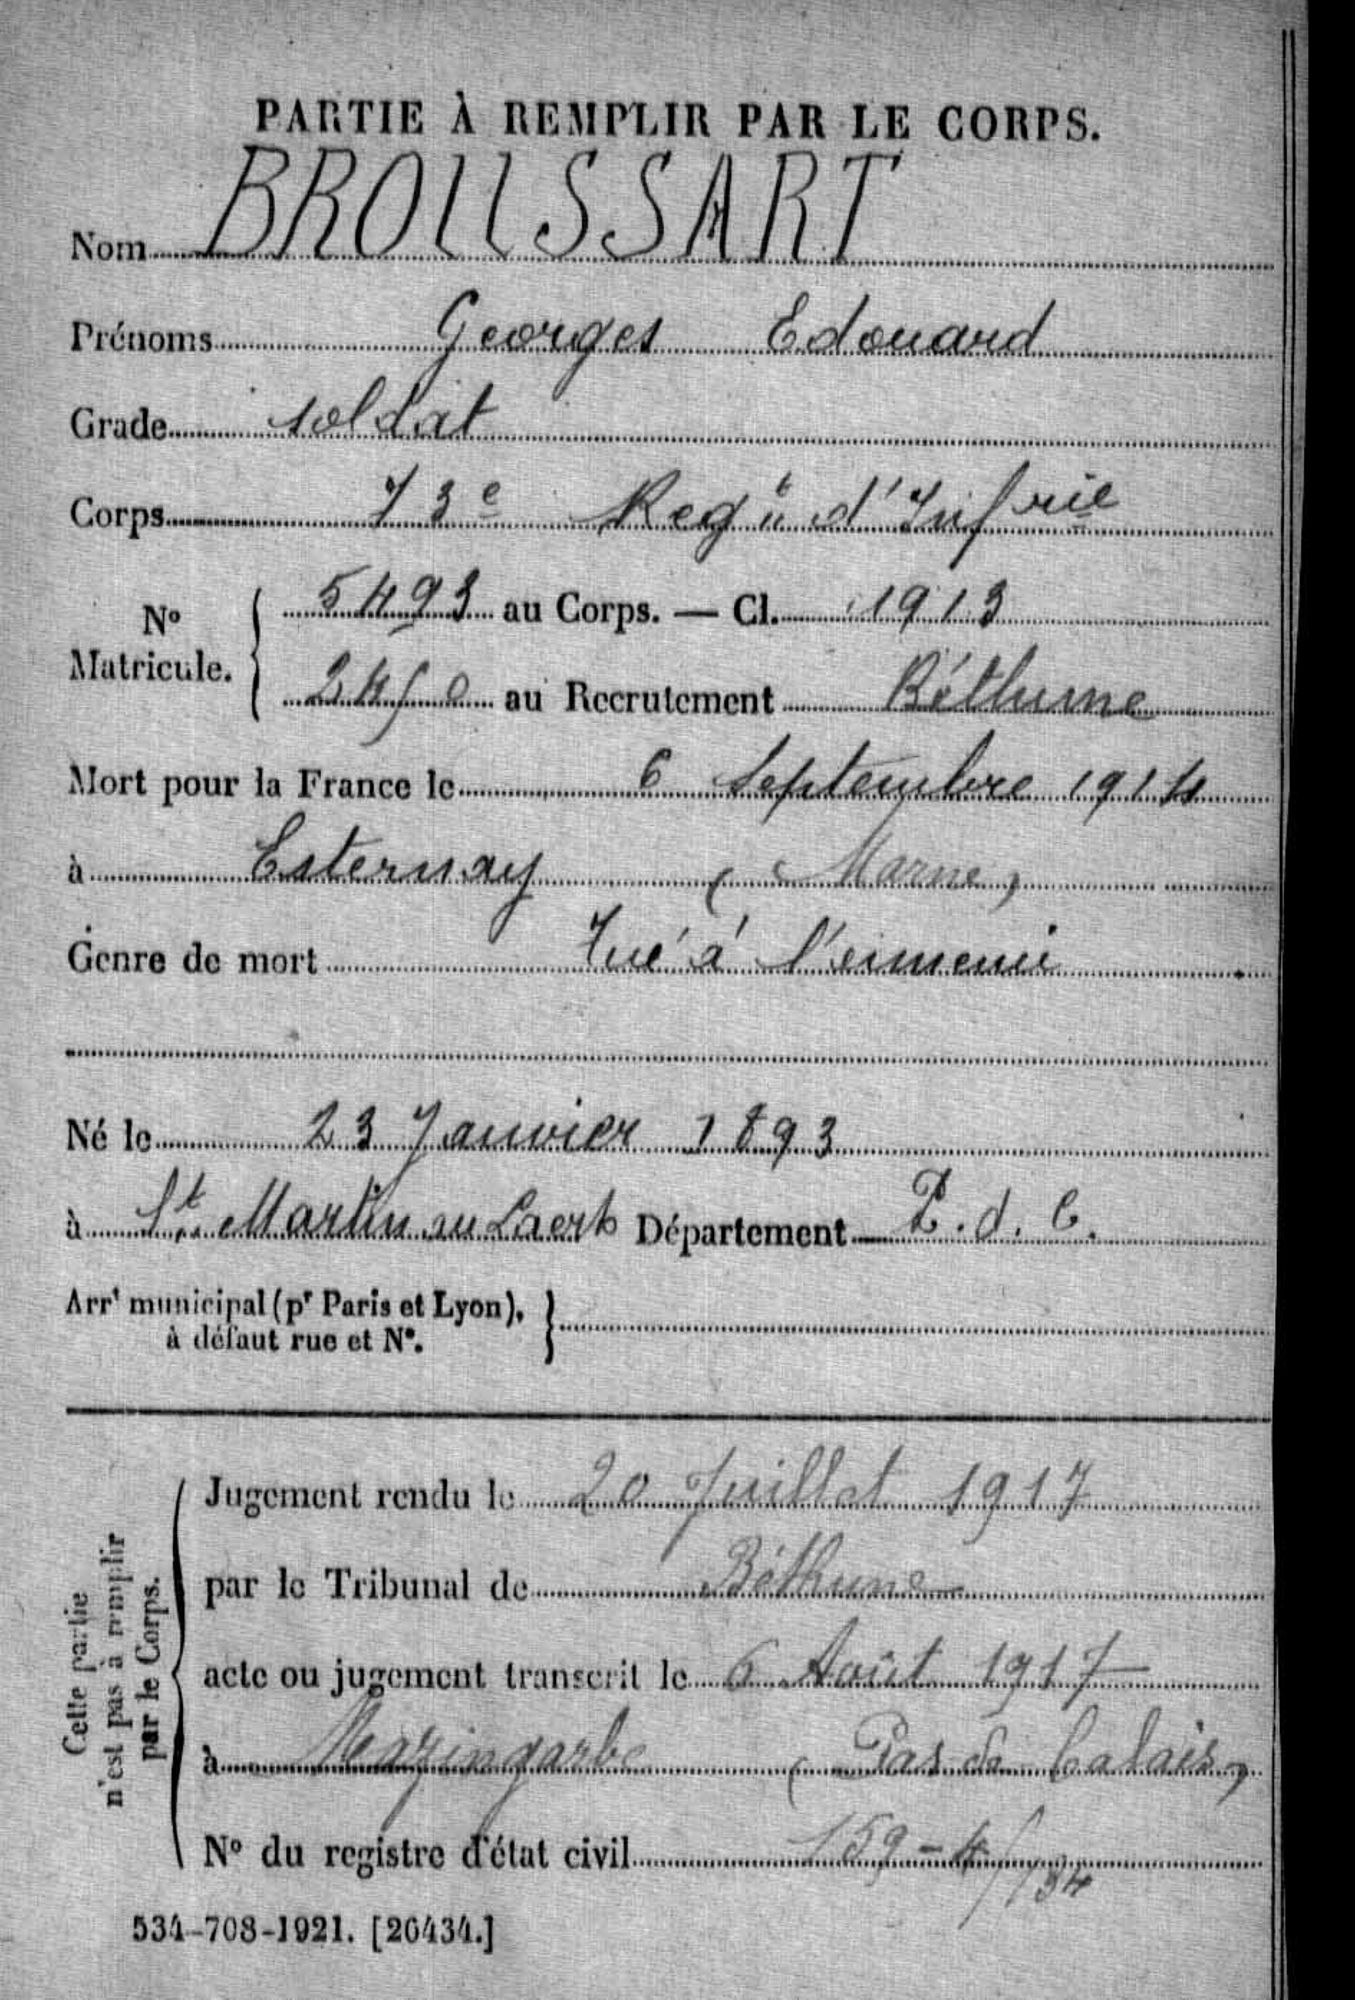 PARTIE À REMPLIR PAR LE CORPS.
Nom BROUSSART
Prénoms Georges Edouard
Grade soldat
Corps 73e Regt d'Infrie
No Matricule. { 5493 au Corps. — Cl. 1913
au Recrutement Béthune
Mort pour la France le 6 Septembre 1914
à Esternay (Marne)
Genre de mort Tué à l'ennemi
Né le 23 Janvier 1893
à St Martin au Laert Département P. d. C.
Arrt municipal (pr Paris et Lyon), }
à défaut rue et No.
Cette partie
n'est pas à remplir
par le Corps.
Jugement rendu le 20 Juillet 1917
par le Tribunal de Béthune
acte ou jugement transcrit le 6 Août 1917
à Mazingarbe (Pas de Calais)
No du registre d'état civil 159-4/134
534-708-1921. [26434.]